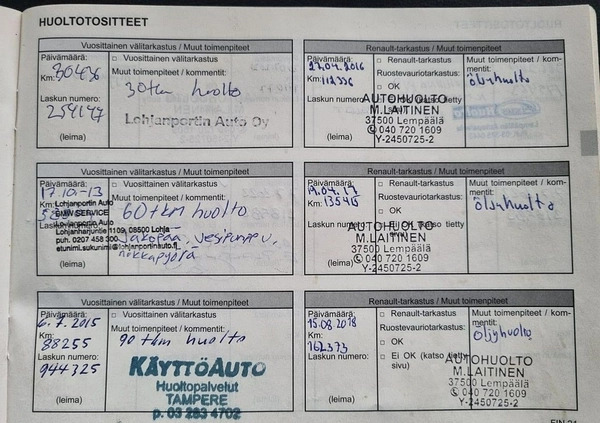 HUOLTOTOSITTEET
Vuosittainen välitarkastus / Muut toimenpiteet
Päivämäärä:
□ Vuosittainen välitarkastus
Km: 30436
Muut toimenpiteet / kommentit:
30tkm huolto
Laskun numero:
Lohjanportin Auto Oy
(leima)
Vuosittainen välitarkastus / Muut toimenpiteet
Päivämäärä:
□ Vuosittainen välitarkastus
17.10.-13
Muut toimenpiteet / kommentit:
Km:
Lohjanportin Auto
BMW SERVICE
60tkm huolto
Lohjanportin Auto
Laskun numero:
Lohjanharjuntie 1109, 08500 Lohja
puh. 0207 458 300
etunimi.sukunimi@lohjanportinauto.fi
Jakopää, vesipumppu,
(leima)
Vuosittainen välitarkastus / Muut toimenpiteet
Päivämäärä:
□ Vuosittainen välitarkastus
6.7.2015
Muut toimenpiteet / kommentit:
Km:
88255
90 tkm huolto
Laskun numero:
944325
KÄYTTÖAUTO
Huoltopalvelut
TAMPERE
p. 03 283 4702
(leima)
Renault-tarkastus / Muut toimenpiteet
Päivämäärä:
□ Renault-tarkastus
Muut toimenpiteet / kommentit:
27.04.2016
Ruostevauriotarkastus:
Km: 112336
öljyhuolto
□ OK
Laskun numero
AUTOHUOLTO
M.LAITINEN
37500 Lempäälä
(leima)
✆ 040 720 1609
Y-2450725-2
Renault-tarkastus / Muut toimenpiteet
Päivämäärä:
□ Renault-tarkastus
Muut toimenpiteet / kommentit:
19.04.17
Ruostevauriotarkastus:
Km:
öljyhuolto
□ OK
Laskun numero
AUTOHUOLTO
M.LAITINEN
37500 Lempäälä
(leima)
✆ 040 720 1609
Y-2450725-2
Renault-tarkastus / Muut toimenpiteet
Päivämäärä:
□ Renault-tarkastus
Muut toimenpiteet / kommentit:
15.08.2018
Ruostevauriotarkastus:
Km:
162373
öljyhuolto
□ OK
Laskun numero:
□ Ei OK (katso tietty sivu)
AUTOHUOLTO
M.LAITINEN
37500 Lempäälä
(leima)
✆ 040 720 1609
Y-2450725-2